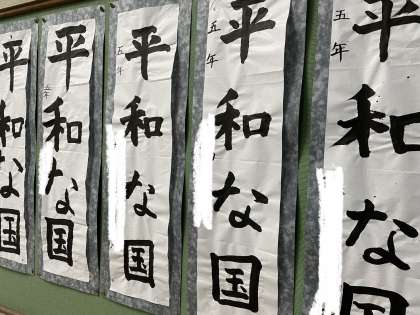 平和な国
五年
平和な国
五年
平和な国
五年
平和な国
平和な国